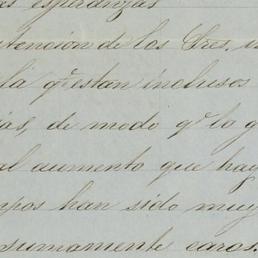 as esperanzas
tencion de los Sres. 
la qe. estan inclusos
as, de modo qe. lo q
al aumento que hay
mpos han sido muy
sumamente caros.